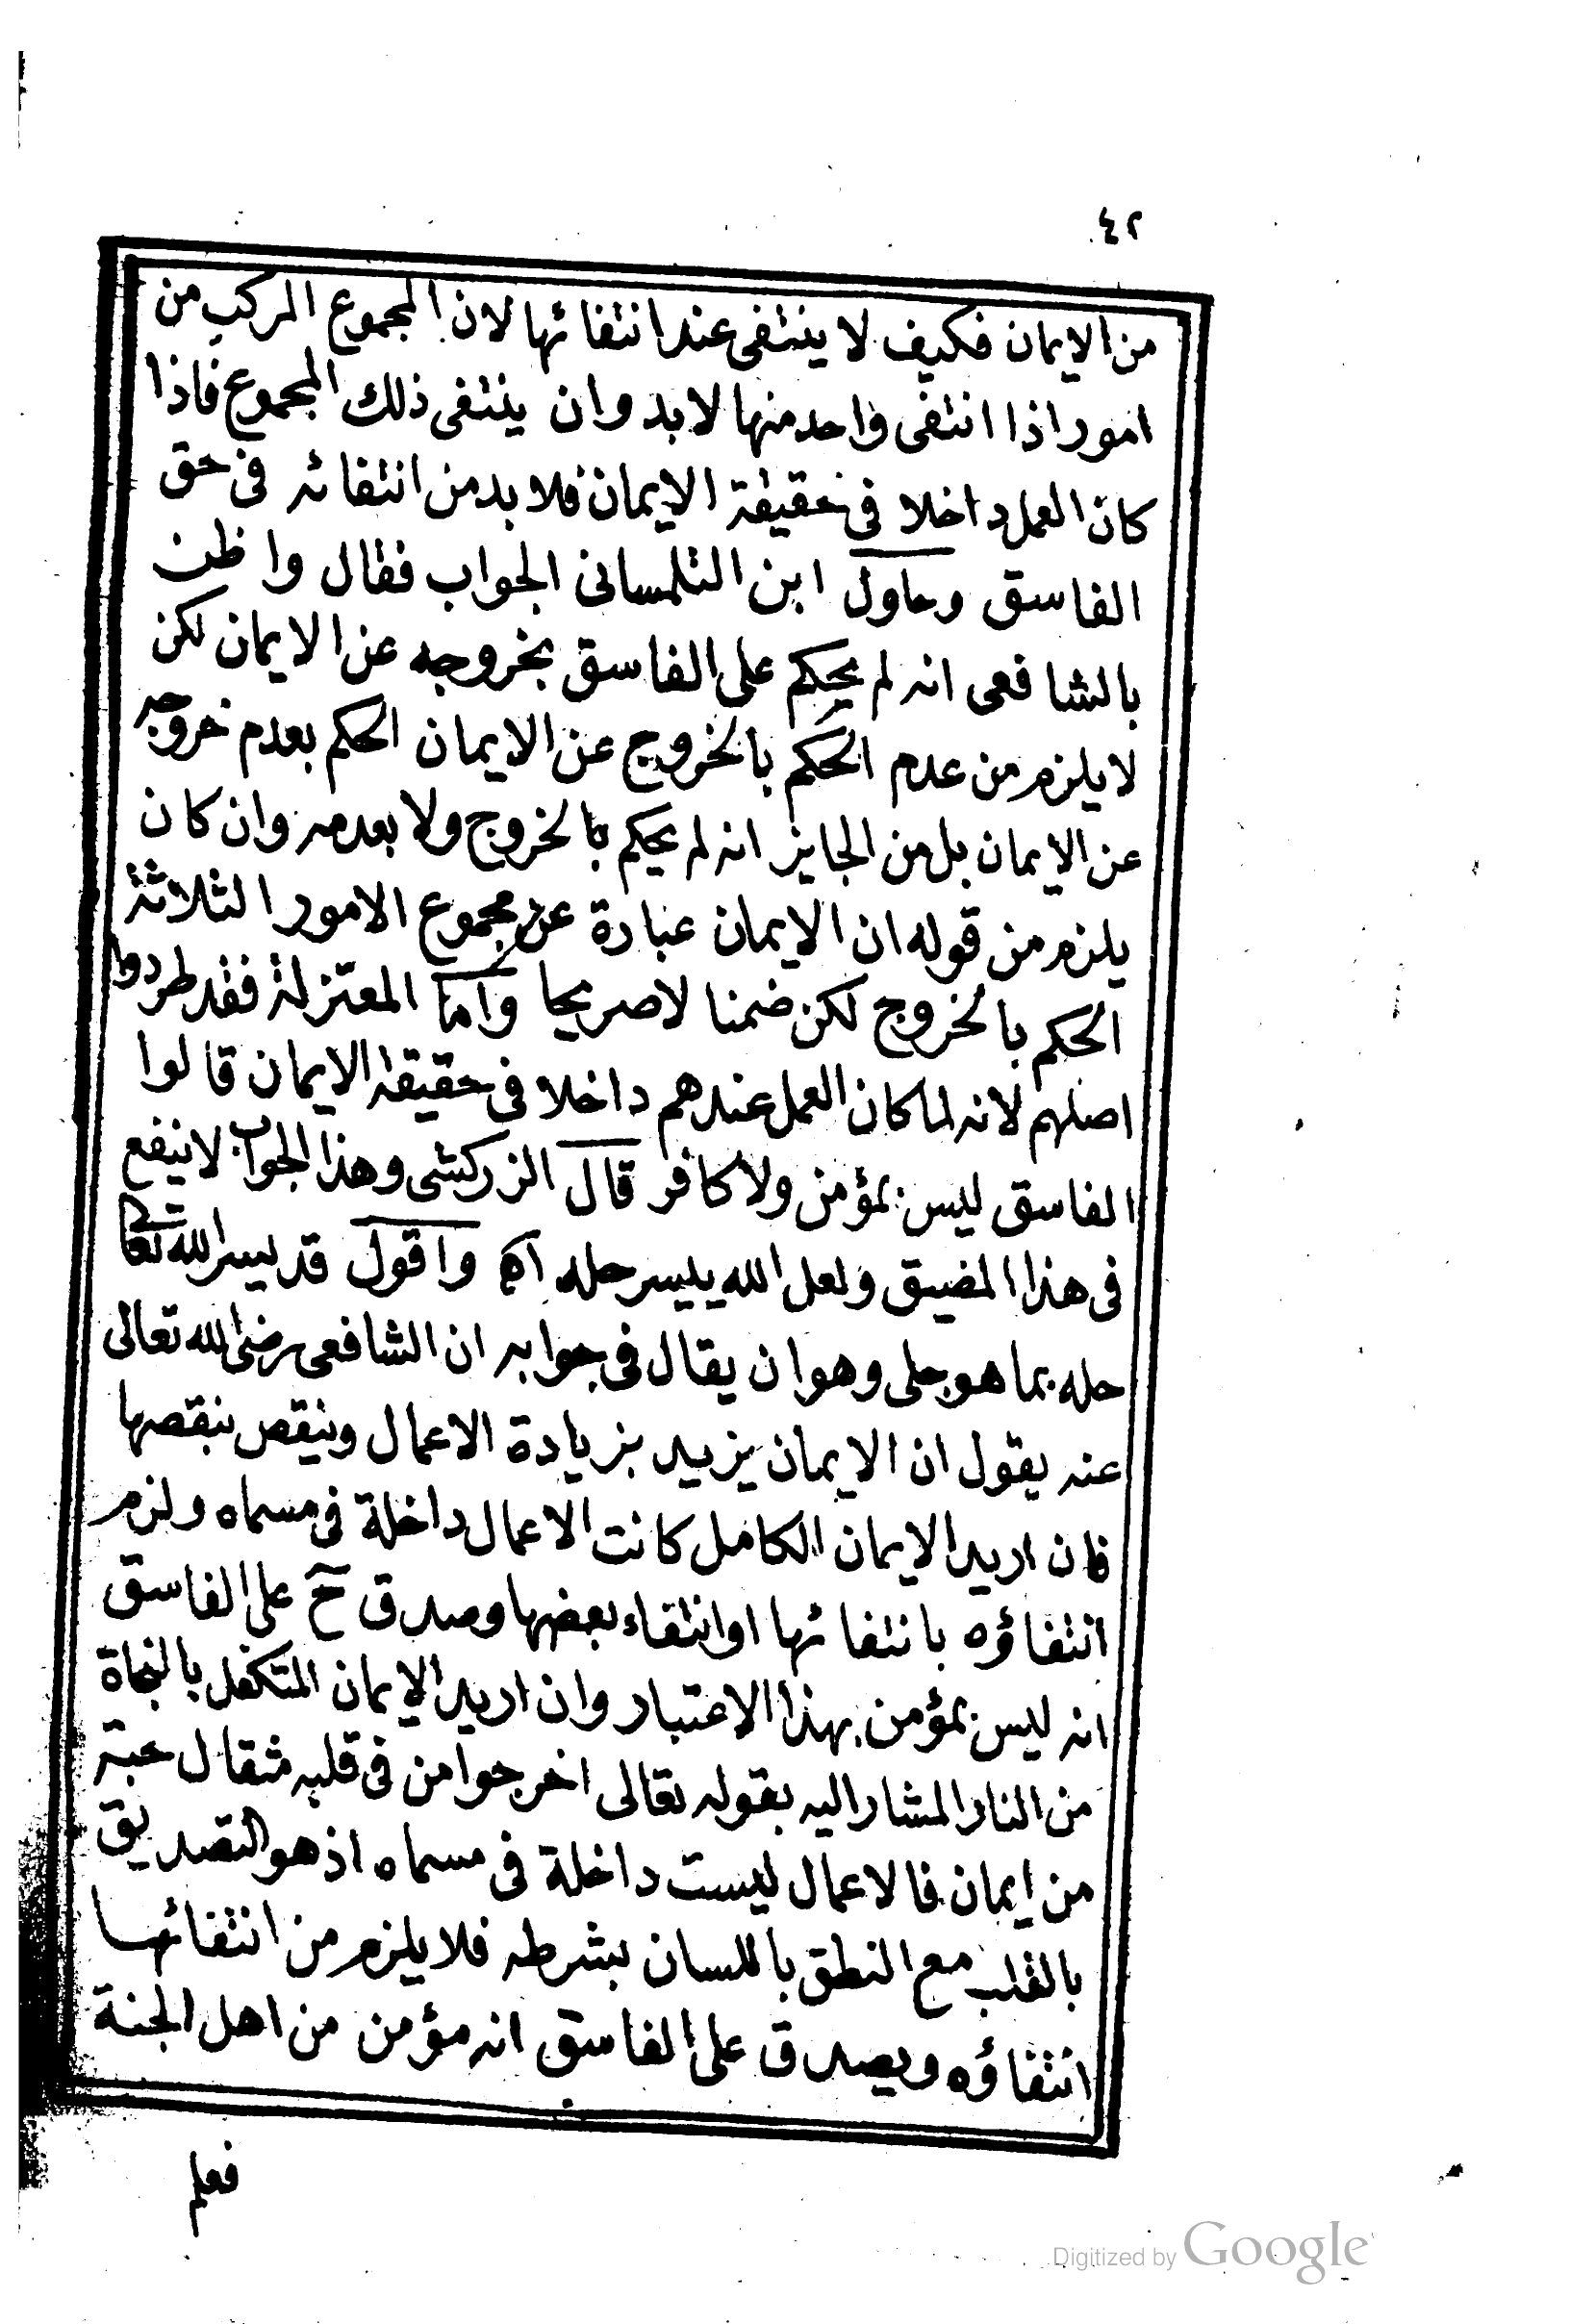 ٤٢
من الايمان فكيف لا ينتفى عند انتفائها لان المجموع المركب من
امور اذا انتفى واحد منها لا بد وان ينتفى ذلك المجموع فاذا
كان العمل داخلا فى حقيقة الايمان فلا بد من انتفائه فى حق
الفاسق وحاول ابن التلمسانى الجواب فقال واظن
بالشافعى انه لم يحكم على الفاسق بخروجه عن الايمان لكن
لا يلزم من عدم الحكم بالخروج عن الايمان الحكم بعدم خروجه
عن الايمان بل من الجايز انه لم يحكم بالخروج ولا بعدمه وان كان
يلزم من قوله ان الايمان عبادة عن مجموع الامور الثلاثة
الحكم بالخروج لكن ضمنا لا صريحا واما المعتزلة فقد طردوا
اصلهم لانه لما كان العمل عندهم داخلا فى حقيقة الايمان قالوا
الفاسق ليس بمؤمن ولا كافر قال الزركشى وهذا الجواب لا ينفع
فى هذا المضيق ولعل الله ييسر حله اه واقول قد يسر الله تعا
حله بما هو جلى وهو ان يقال فى جوابه ان الشافعى رضى الله تعالى
عنه يقول ان الايمان يزيد بزيادة الاعمال وينقص بنقصها
فان اريد الايمان الكامل كانت الاعمال داخلة فى مسماه ولزم
انتفاؤه بانتفائها او انتفاء بعضها وصدق ح على الفاسق
انه ليس بمؤمن بهذا الاعتبار وان اريد الايمان المتكفل بالنجاة
من النار المشار اليه بقوله تعالى اخرجوا من فى قلبه مثقال حبة
من ايمان فالاعمال ليست داخلة فى مسماه اذ هو التصديق
بالقلب مع النطق باللسان بشرطه فلا يلزم من انتفائها
انتفاؤه ويصدق على الفاسق انه مؤمن من اهل الجنة
فعلم
Digitized by Google